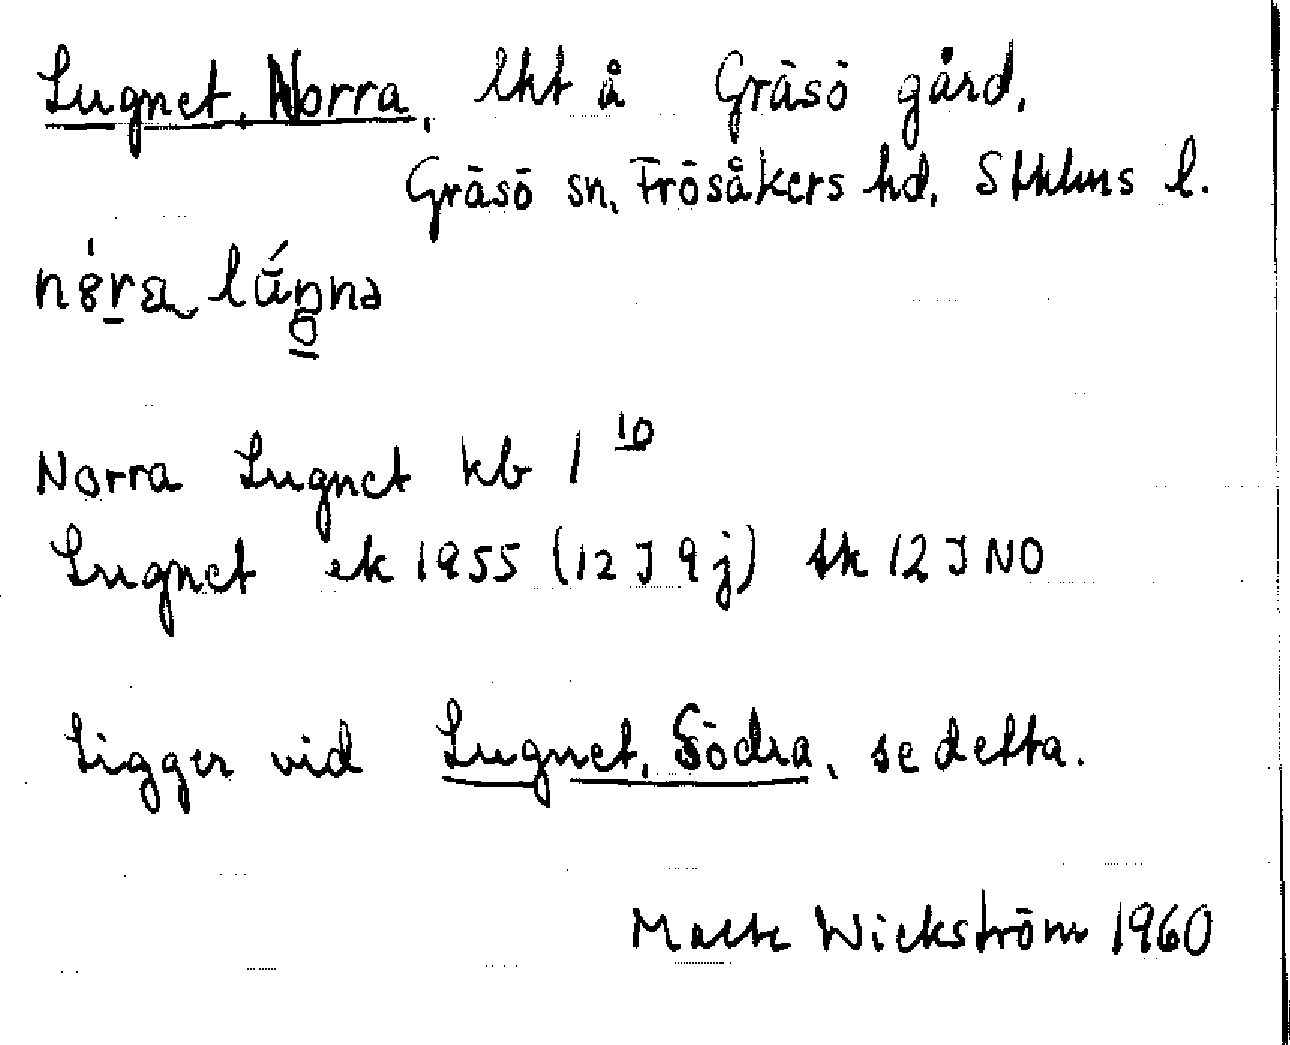 Lugnet, Norra, lht å Gräsö gård,
Gräsö sn, Frösåkers hd, Sthlms l.
Norra Lugnet kb 1 10
Lugnet ek 1955 (12 J 9 j) tk 12 J NO
Ligger vid Lugnet, Södra, se detta.
Wickström 1960